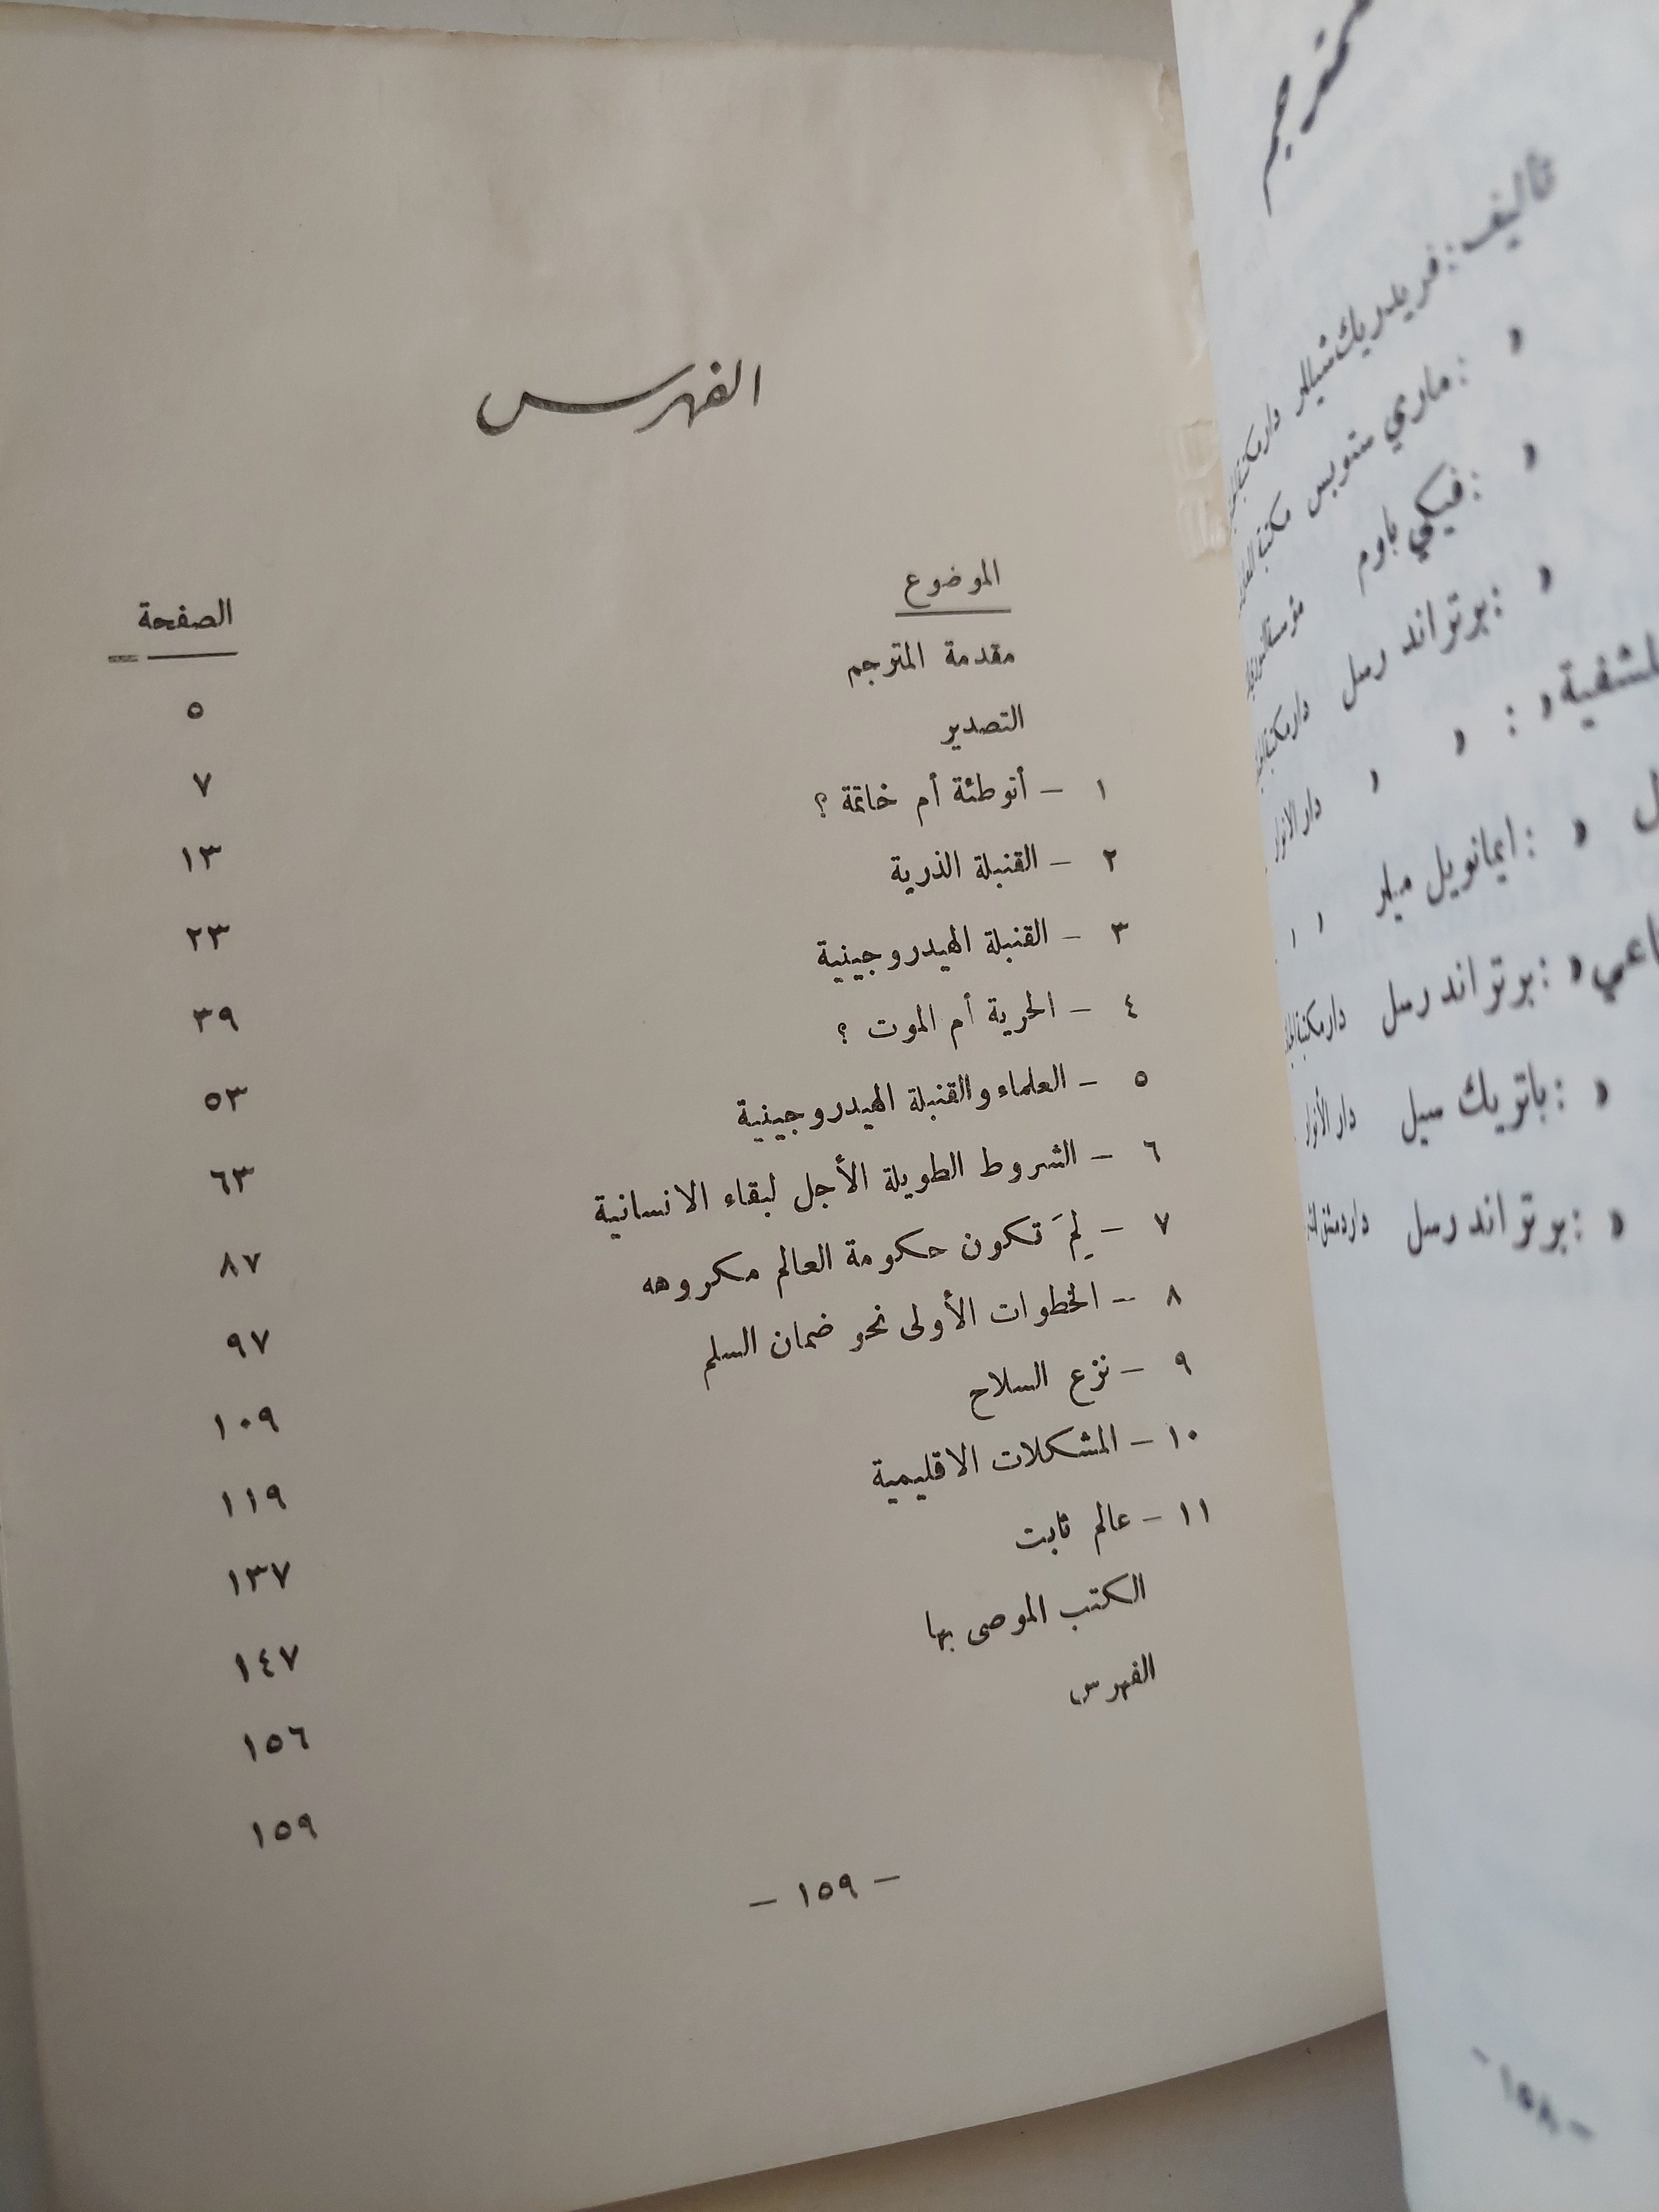 الفهرس
الموضوع الصفحة
مقدمة المترجم ٥
التصدير ٧
١ - أتوطئة أم خاتمة ؟ ١٣
٢ - القنبلة الذرية ٢٣
٣ - القنبلة الهيدروجينية ٣٩
٤ - الحرية أم الموت ؟ ٥٣
٥ - العلماء والقنبلة الهيدروجينية ٦٣
٦ - الشروط الطويلة الأجل لبقاء الانسانية ٨٧
٧ - لِمَ تكون حكومة العالم مكروهه ٩٧
٨ - الخطوات الأولى نحو ضمان السلم ١٠٩
٩ - نزع السلاح ١١٩
١٠ - المشكلات الاقليمية ١٣٧
١١ - عالم ثابت ١٤٧
الكتب الموصى بها ١٥٦
الفهرس ١٥٩
- ١٥٩ -
تأليف : فريدريك شيللر
» : ماري ستوبس
» : فيكي باوم
» : برتراند رسل
» : » »
» : ايمانويل ميلر
» : برتراند رسل
» : باتريك سيل دار الأنوار
» : برتراند رسل
- ١٥٨ -